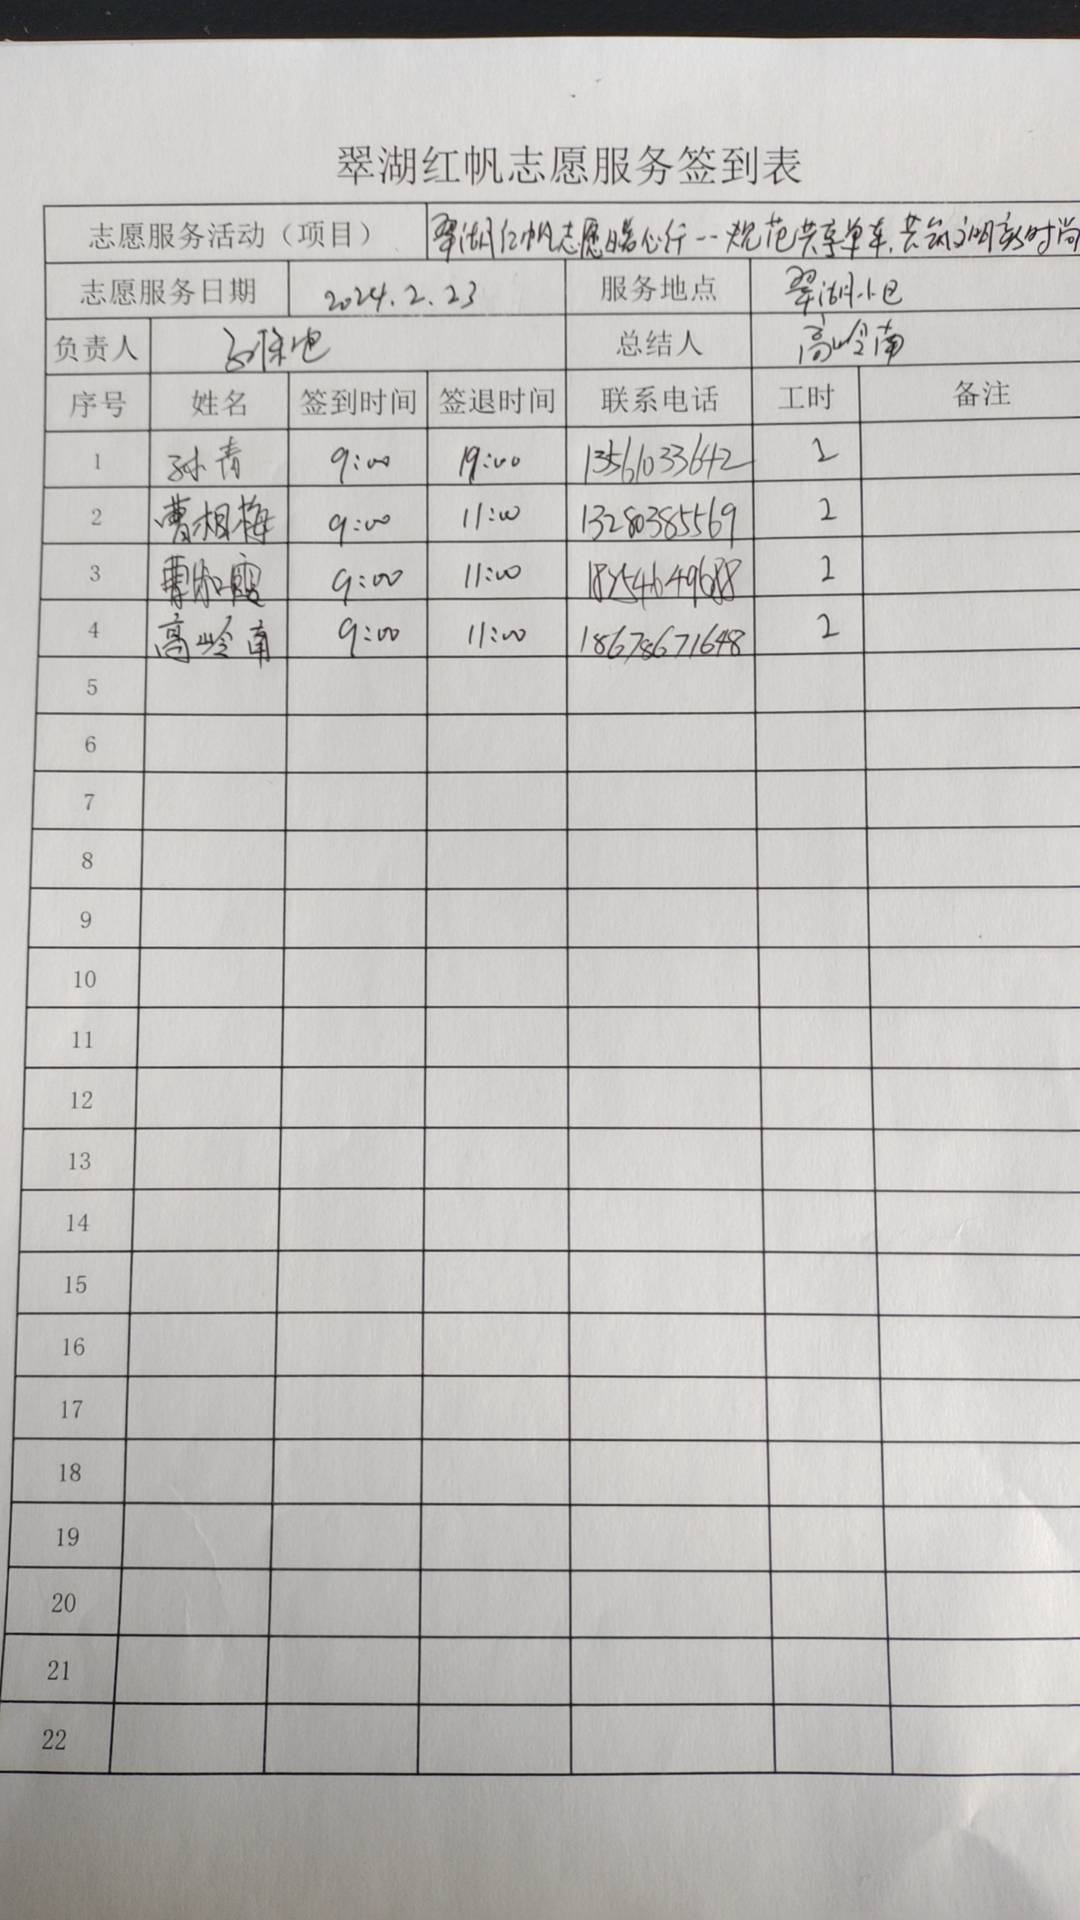 翠湖红帆志愿服务签到表
志愿服务活动（项目） 翠湖红帆志愿暖心行--规范共享单车,共筑文明新时尚
志愿服务日期 2024.2.23 服务地点 翠湖小区
负责人 总结人 高岭南
序号 姓名 签到时间 签退时间 联系电话 工时 备注
1 孙青 9:00 19:00 13561033642 2
2 曹相梅 9:00 11:00 13280385569 2
3 9:00 11:00 2
4 高岭南 9:00 11:00 18678671648 2
5
6
7
8
9
10
11
12
13
14
15
16
17
18
19
20
21
22